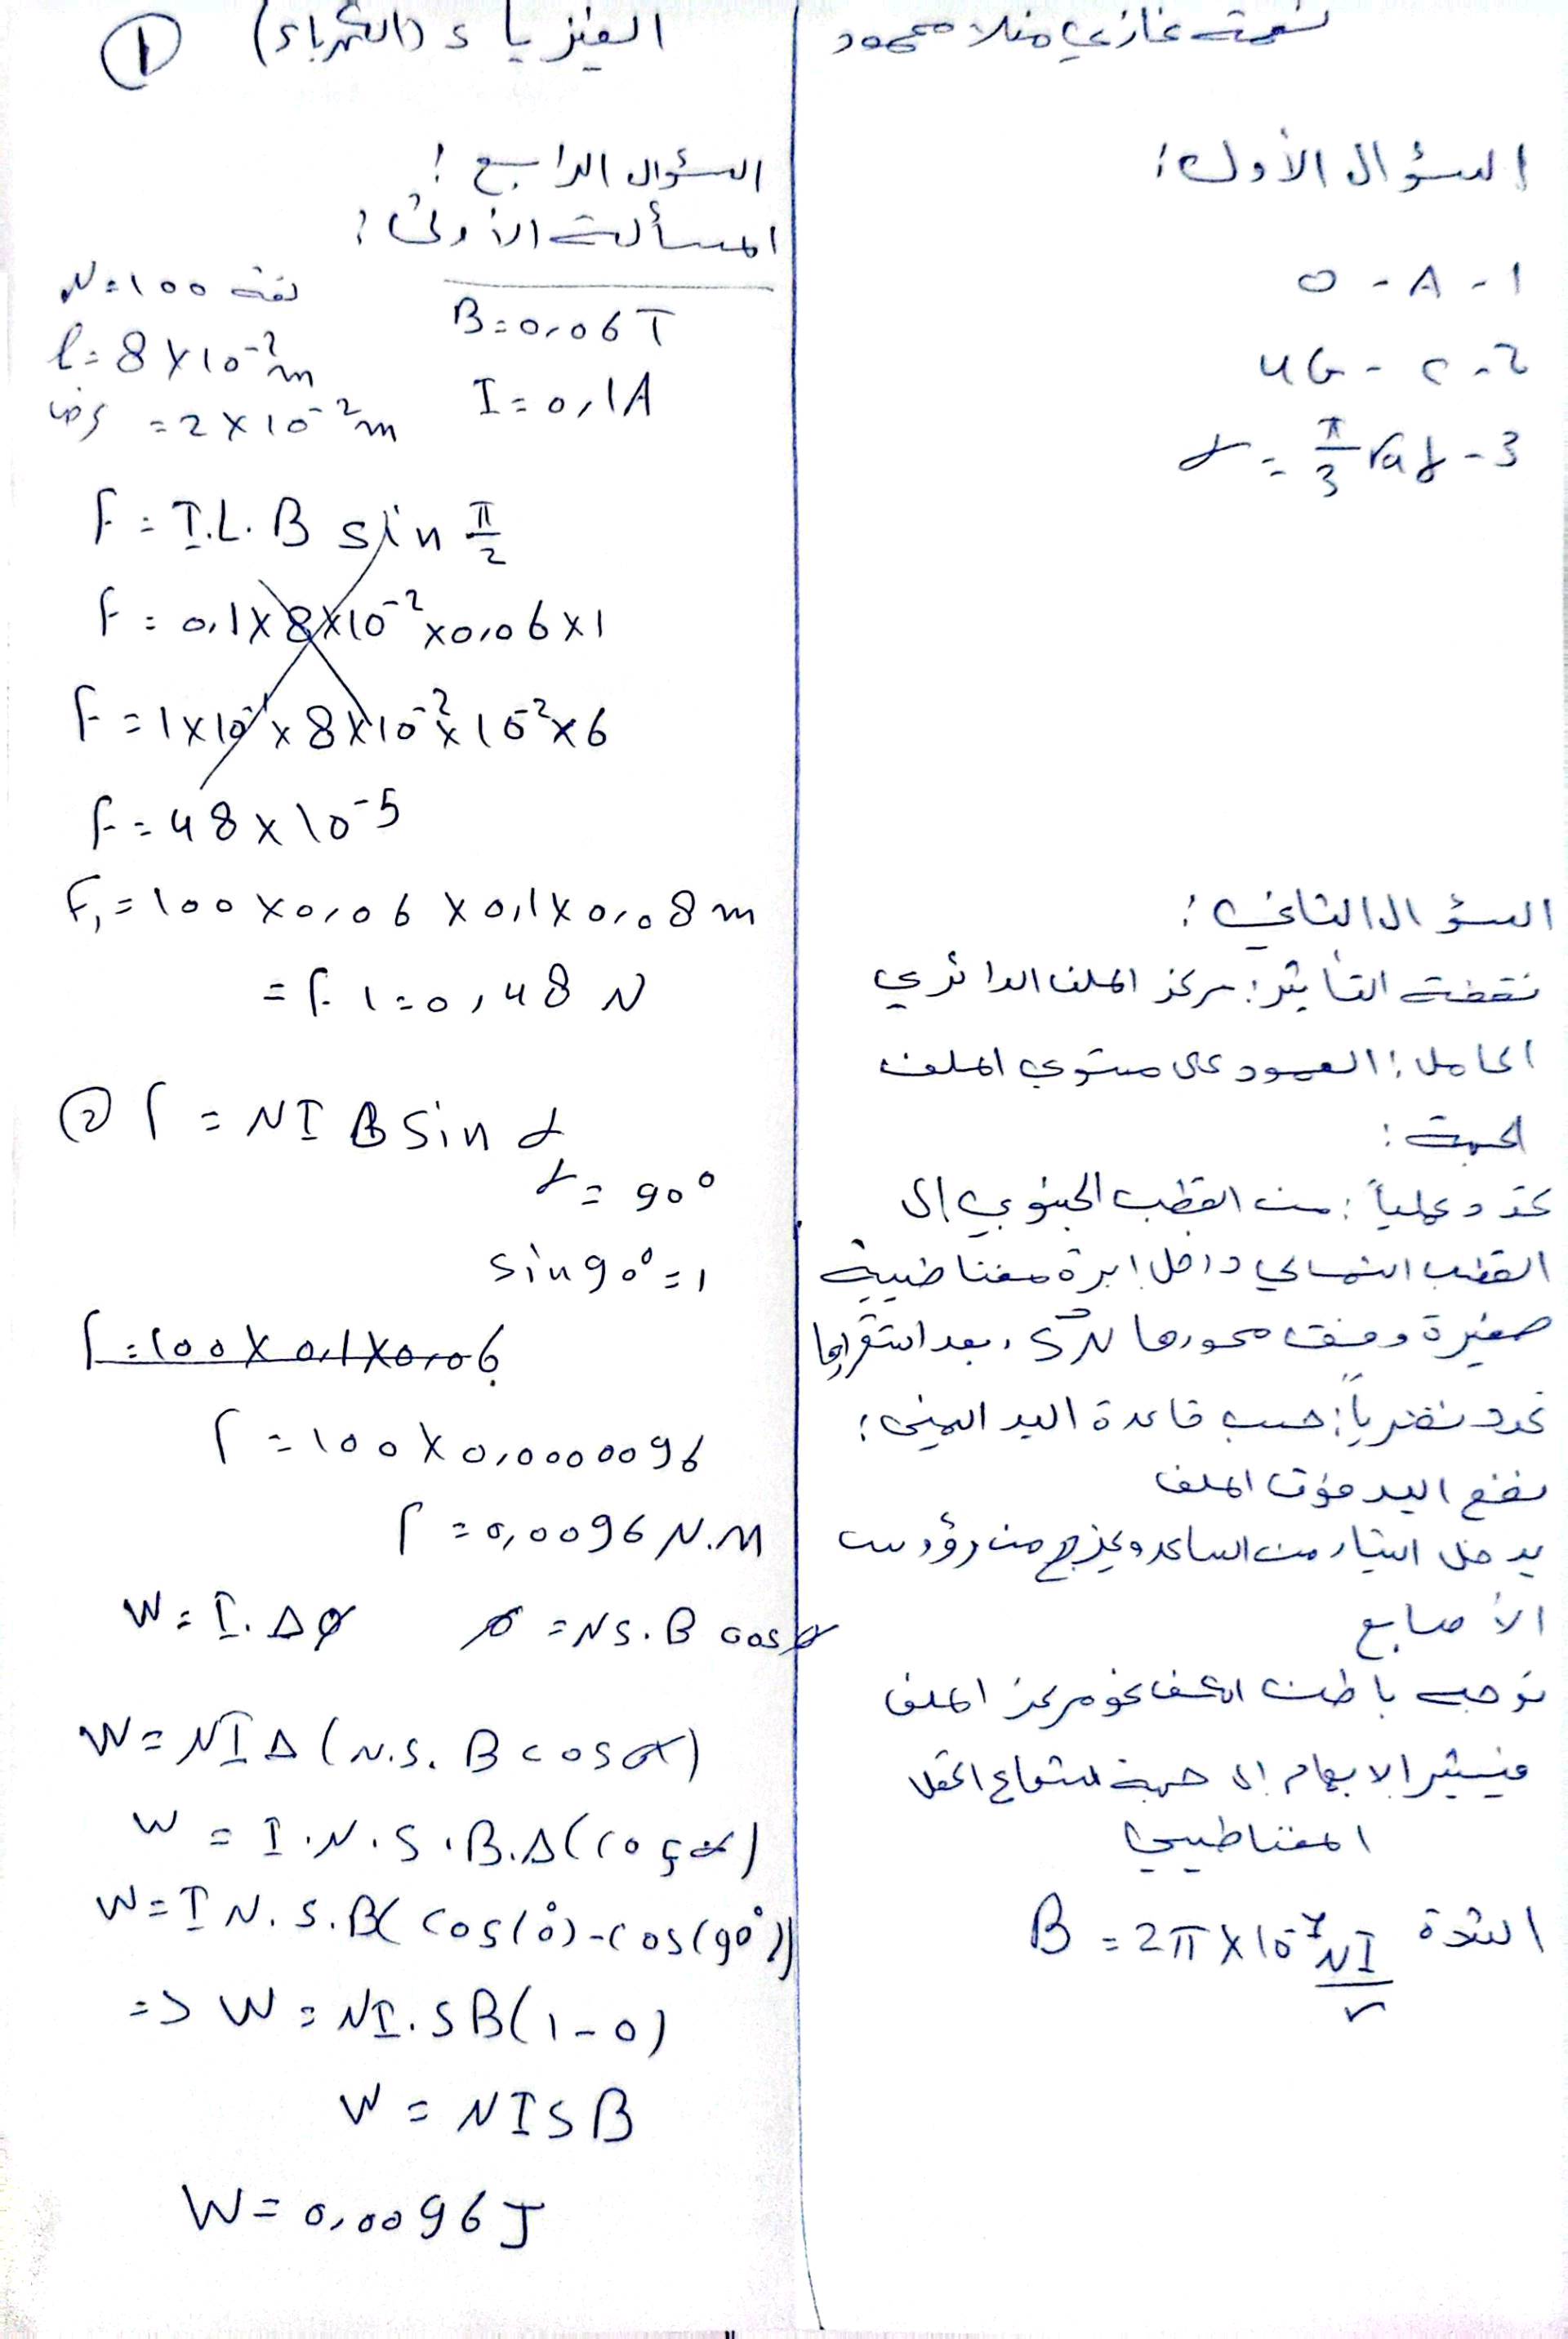 الفيزياء (الكهرباء) 1
السؤال الأول:
1 - A - 0
2 - c - 4G
3 - α = π/3 rad
السؤال الثاني:
نقطة التأثير: مركز الملف الدائري
الحامل: العمود على مستوي الملف
الجهة:
تحدد عملياً: من القطب الجنوبي إلى
القطب الشمالي داخل ابرة مغناطيسية
صغيرة وضعت محورها بعد استقرارها
تحدد نظرياً: حسب قاعدة اليد اليمنى:
نضع اليد فوق الملف
يدخل التيار من الساعد ويخرج من رؤوس
الأصابع
نوجه باطن الكف نحو مركز الملف
فيشير الابهام إلى جهة شعاع الحقل
المغناطيسي
الشدة B = 2π × 10⁻⁷ NI/r
السؤال الرابع:
المسألة الأولى:
N = 100 لفة
B = 0,06 T
l = 8 × 10⁻² m
I = 0,1 A
عرض = 2 × 10⁻² m
F = I.L.B sin π/2
F = 0,1 × 8 × 10⁻² × 0,06 × 1
F = 1 × 10⁻¹ × 8 × 10⁻² × 10⁻² × 6
F = 48 × 10⁻⁵
F₁ = 100 × 0,06 × 0,1 × 0,08 m
= F1 = 0,48 N
② Γ = NI B sin α
α = 90°
sin 90° = 1
Γ = 100 × 0,1 × 0,06
Γ = 100 × 0,0000096
Γ = 0,0096 N.M
W = I. Δφ φ = NS. B cos α
W = NI Δ (N.S. B cos α)
W = I.N.S.B.Δ(cos α)
W = I N.S.B( cos(0°) - cos(90°))
=> W = NI.SB(1-0)
W = NISB
W = 0,0096 J